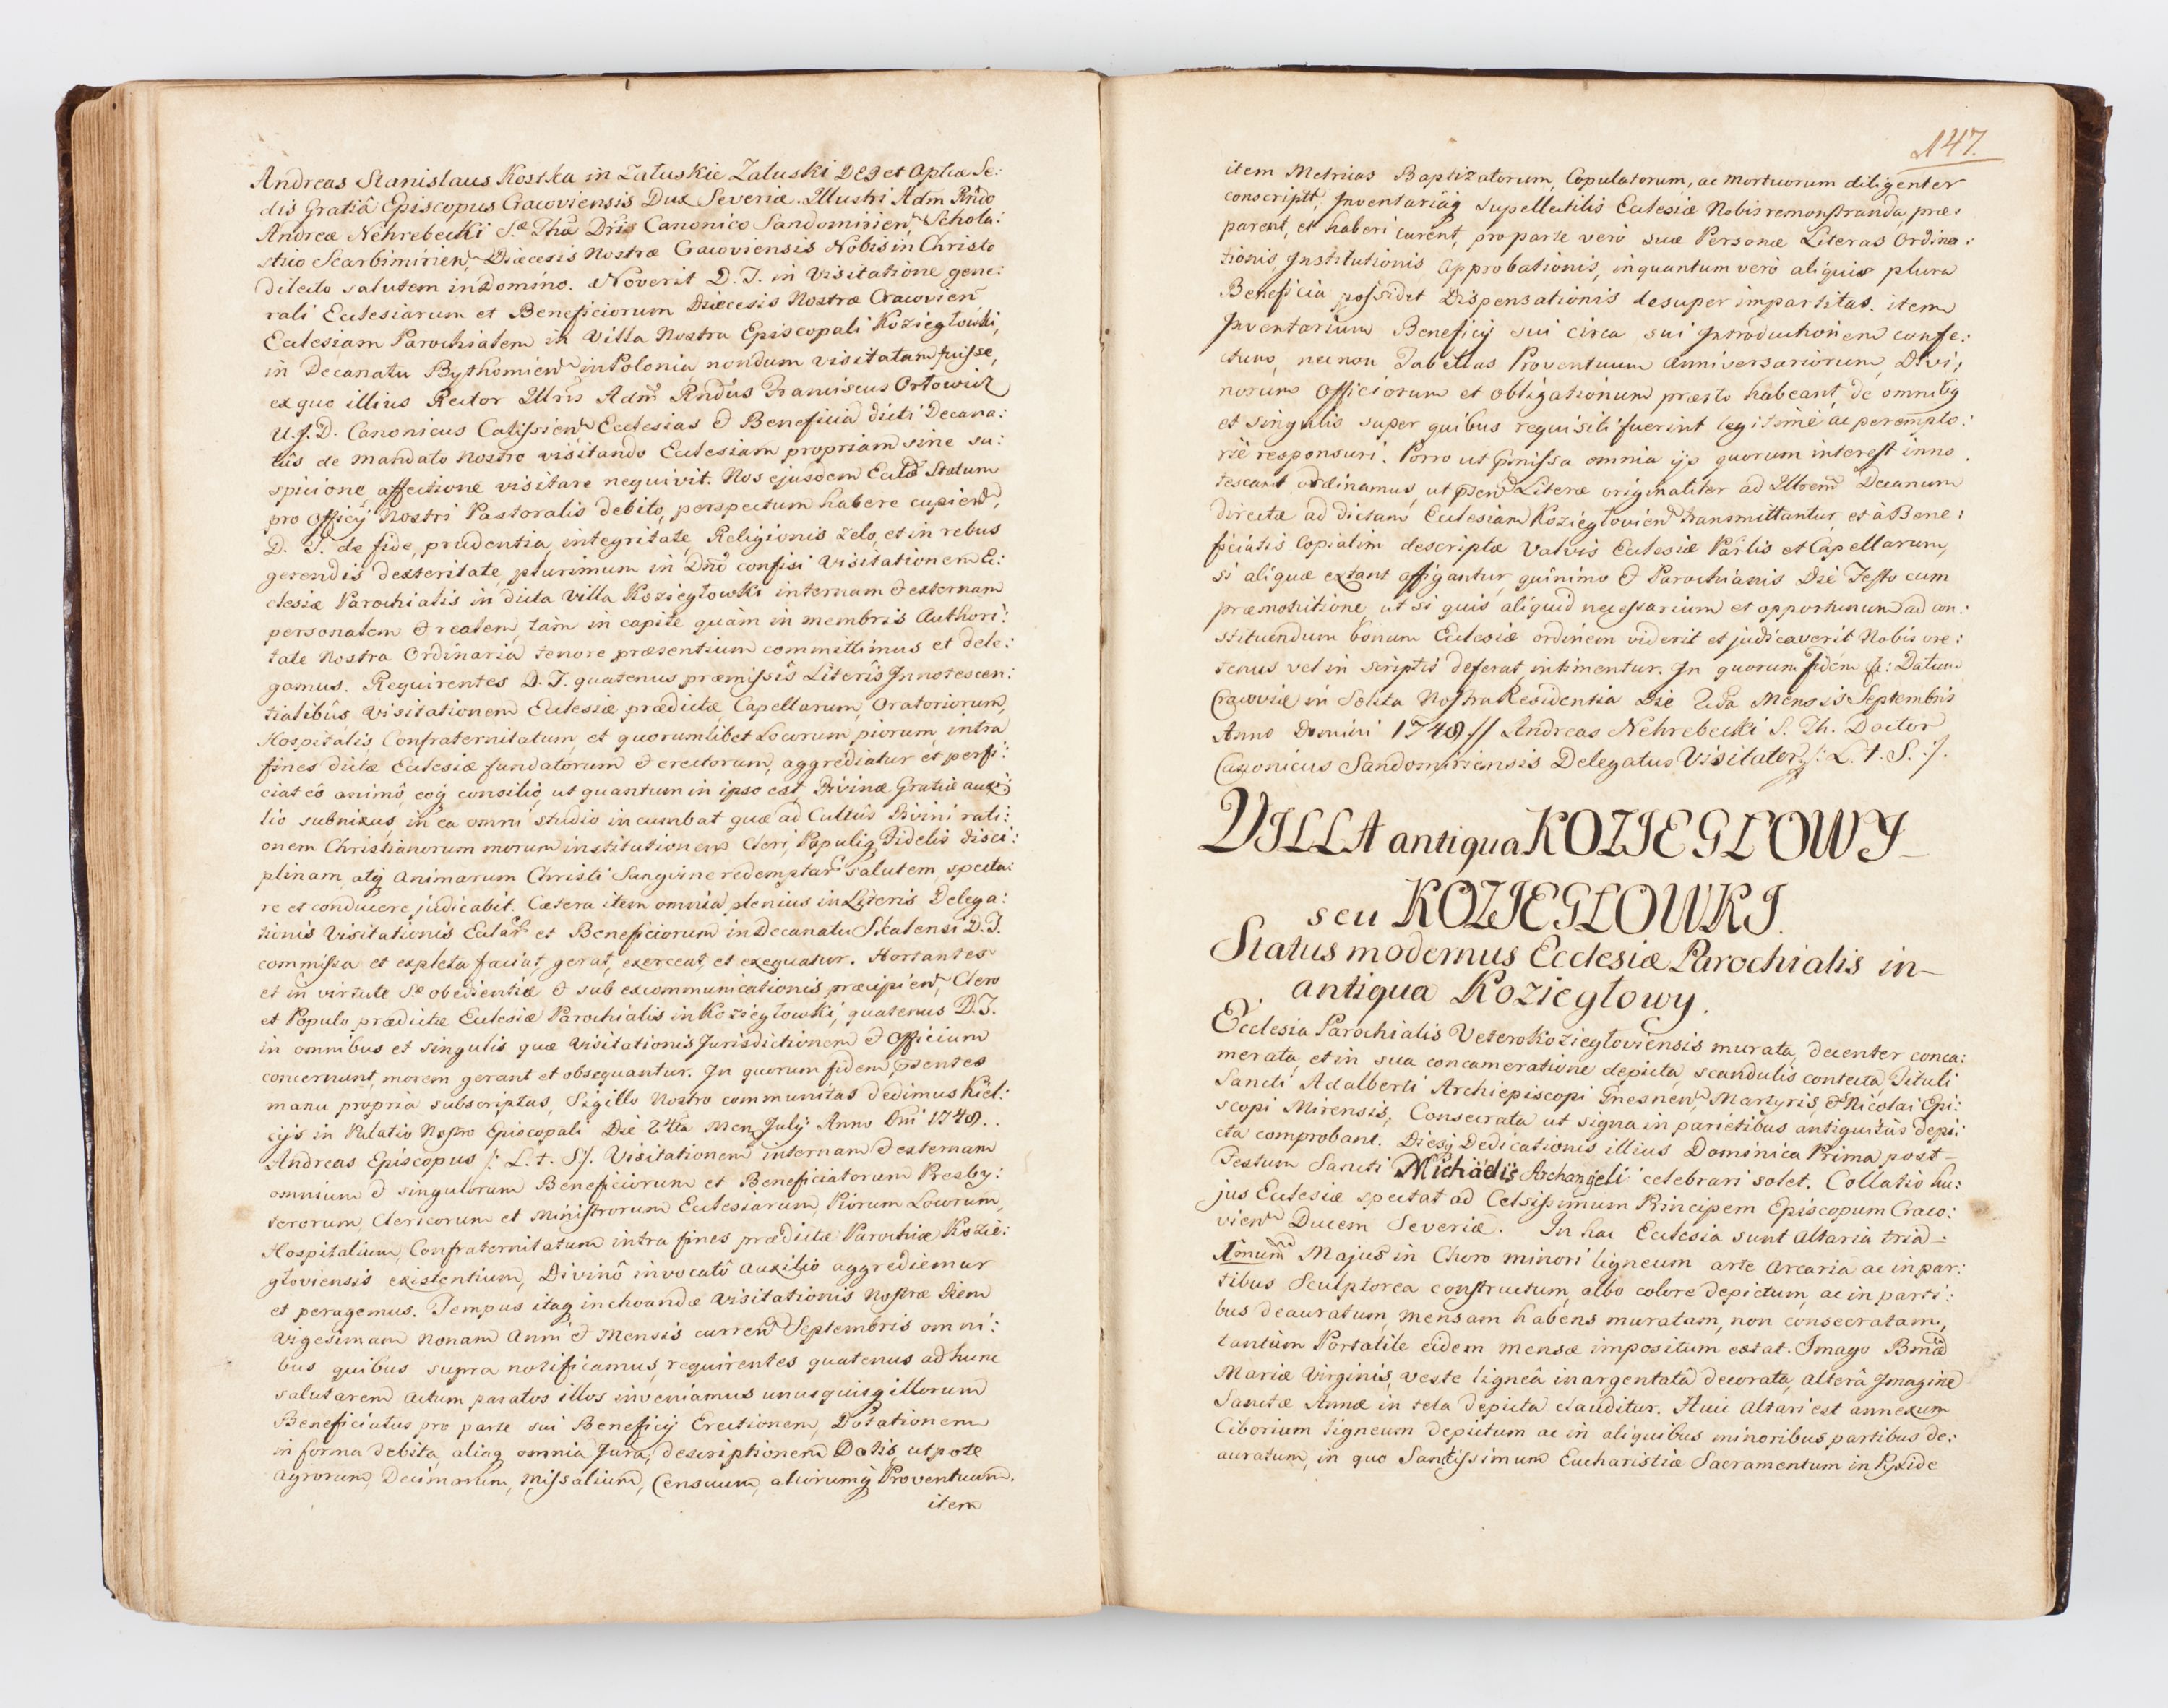 Andreas Stanislaus Kostka in Załuskie Załuski DEJ et Aplica Se:
dis Gratiâ Episcopus Cracoviensis Dux Severiæ. Illustri Adm Rndo
Andreæ Nehrebecki S.æ Thæ Dris Canonico Sandomirien, Schola:
stico Scarbimirien, Diæcesis Nostræ Cracoviensis Nobis in Christo
dilecto salutem in Domino. Noverit D. T. in Visitatione gene:
rali Ecclesiarum et Beneficiorum Diæcesis Nostræ Cracovien
Ecclesiam Parochialem in Villa Nostra Episcopali Koziegłowki,
in Decanatu Bythomien in Polonia, nondum visitatam fuisse,
ex quo illius Rector Illris Adm Rndus Franciscus Orłowicz
U.J.D. Canonicus Calissien Ecclesias & Beneficia dicti Decana:
tûs de mandato Nostro visitando Ecclesiam propriam sine su:
spicione, affectione visitare nequivit. Nos ejusdem Eccliæ Statum
pro Officij Nostri Pastoralis debito, perspectum habere cupien,
D. T. de fide, prudentia, integritate, Religionis zelo, et in rebus
gerendis dexteritate, plurimum in Dno confisi Visitationem Ec:
clesiæ Parochialis in dicta Villa Koziegłowki internam & externam
personalem & realem, tam in capite quàm in membris Authori:
tate Nostra Ordinaria tenore præsentium committimus et dele:
gamus. Requirentes D. T. quatenus præmissis Literis Innotescen:
tialibûs Visitationem Ecclesiæ prædictæ, Capellarum, Oratoriorum,
Hospitalis, Confraternitatum, et quorumlibet Locorum piorum, intra
fines dictæ Ecclesiæ fundatorum & erectorum, aggrediatur et perfi:
ciat eô animô, eoq consiliô, ut quantum in ipso est, Divinæ Gratiæ auxi:
lio subnixus, in ea omni studio incumbat quæ ad Cultûs Divini rati:
onem Christianorum morum institutionem Cleri, Populiq Fidelis disci:
plinam, atq Animarum Christi Sangvine redemptar salutem, specta:
re et conducere judicabit. Cætera item omnia plenius in Literis Delega:
tionis Visitationis Ecclar et Beneficiorum in Decanatu Skalensi D. T.
commissa et expleta faciat, gerat, exerceat, et exequatur. Hortantes
et in virtute Sæ obedientiæ & sub excommunicationis præcipien, Clero
et Populo prædictæ Ecclesiæ Parochialis in Koziegłowki, quatenus D.T.
in omnibus et singulis quæ Visitationis Jurisdictionem & Officium
concernunt, morem gerant et obsequantur. In quorum fidem, psentes
manu propria subscriptas, Sigillo Nostro communitas dedimus Kiel:
cijs in Palatio Nostro Episcopali Die 24ta Men, Julij Anno Dni 1748..
Andreas Episcopus /: L. †. S:/. Visitationem internam & externam
omnium & singulorum Beneficiorum et Beneficiatorum Presby:
terorum, Clericorum et Ministrorum Ecclesiarum, Piorum Locorum,
Hospitalium, Confraternitatum intra fines prædictæ Parochiæ Kozie:
głoviensis existentium, Divinô invocatô Auxiliô aggrediemur
et peragemus. Tempus itaq inchoandæ Visitationis Nostræ Diem
Vigesimam Nonam Anni & Mensis curren Septembris omni:
bus quibus supra notificamus, requirentes quatenus ad hunc
salutarem Actum paratos illos inveniamus unusquisq illorum
Beneficiatus pro parte sui Beneficij Erectionem, Dotationem
in forma debita, aliaq omnia Jura, descriptionem Dotis, utpote
Agrorum, Decimarum, Missalium, Censuum, aliorumq Proventuum.
item
147.
item Metricas Baptizatorum, Copulatorum, ac Mortuorum diligenter
conscript, Inventariaq supellectilis Ecclesiæ Nobis remonstranda, præ:
parent, et haberi curent, pro parte verò suæ Personæ Literas Ordina:
tionis, Institutionis Approbationis, in quantum verò aliquis plura
Beneficia possidet Dispensationis desuper impartitas. item
Inventarium Beneficij sui circa sui Introductionem confe:
ctum, nec non Tabellas Proventuum Anniversariorum, Divi:
norum Officiorum et Obligationum præsto habeant, de omnibq
et singulis super quibus requisiti fuerint legitimè ac perempto:
riè responsuri. Porro ut pmissa omnia ijs quorum interest inno
tescant ordinamus, ut psen Literæ originaliter ad Illrem Decanum
directæ ad dictam Ecclesiam Koziegłovien transmittantur, et à Bene:
ficiatis Copiatim descriptæ Valvis Ecclesiæ Pailis et Capellarum,
si aliquæ extant affigantur, quinimo & Parochianis Die Festo cum
præmonitione, ut si quis aliquid necessarium et opportunum ad con:
stituendum bonum Ecclesiæ ordinem viderit et judicaverit Nobis ore:
tenus vel in scriptis deferat, intimentur. In quorum fidem &: Datum
Cracoviæ in Solita Nostra Residentia Die 2da Mensis Septembris
Anno Domini 1748 // Andreas Nehrebecki S. Th. Doctor
Canonicus Sandomiriensis Delegatus Visitator /: L. †. S. :/.
VILLA antiqua KOZIEGŁOWY
seu KOZIEGŁOWKI.
Status modernus Ecclesiæ Parochialis in
antiqua Koziegłowy.
Ecclesia Parochialis Veterokoziegłoviensis murata, decenter conca:
merata, et in sua concameratione depicta, scandulis contecta, Tituli
Sancti Adalberti Archiepiscopi Gnesnen, Martyris, & Nicolai Epi:
scopi Mirensis, Consecrata ut signa in parietibus antiquitûs depi:
cta comprobant. Diesq Dedicationis illius Dominica Prima post
Festum Sancti Michaelis Archangeli celebrari solet. Collatio hu:
jus Ecclesiæ spectat ad Celsissimum Principem Episcopum Craco:
vien Ducem Severiæ. In hac Ecclesia sunt Altaria tria.
1mum Majus in Choro minori ligneum arte Arcaria ac in par:
tibus Sculptorea constructum, albo colore depictum, ac in parti:
bus deauratum, mensam habens muratam, non consecratam,
tantùm Portatile eidem mensæ impositum extat. Imago Bmæ
Mariæ Virginis, veste ligneâ inargentatâ decorata, alterâ Imagine
Sanctæ Annæ in tela depicta clauditur. Huic Altari est annexum
Ciborium ligneum depictum ac in aliquibus minoribus partibus de:
auratum, in quo Sanctissimum Eucharistiæ Sacramentum in Pyxide